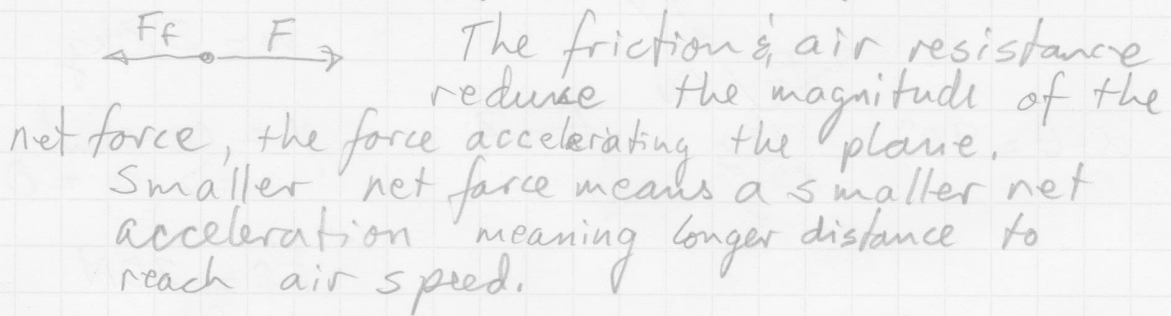 Ff F
The friction & air resistance
reduce the magnitude of the
net force, the force accelerating the plane.
Smaller net force means a smaller net
acceleration meaning longer distance to
reach air speed.